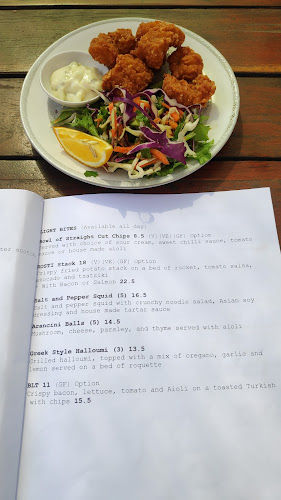 LIGHT BITES (Available all day)
Bowl of Straight Cut Chips 8.5 (V)(VE)(GF) Option
Served with choice of sour cream, sweet chilli sauce, tomato
sauce or house made aioli
ROSTI Stack 18 (V)(VE)(GF) Option
Crispy fried potato stack on a bed of rocket, tomato salsa,
avocado and tzatziki
With Bacon or Salmon 22.5
Salt and Pepper Squid (5) 16.5
Salt and pepper squid with crunchy noodle salad, Asian soy
dressing and house made tartar sauce
Arancini Balls (5) 14.5
Mushroom, cheese, parsley, and thyme served with aioli
Greek Style Halloumi (3) 13.5
Grilled halloumi, topped with a mix of oregano, garlic and
lemon served on a bed of roquette
BLT 11 (GF) Option
Crispy bacon, lettuce, tomato and Aioli on a toasted Turkish
with chips 15.5